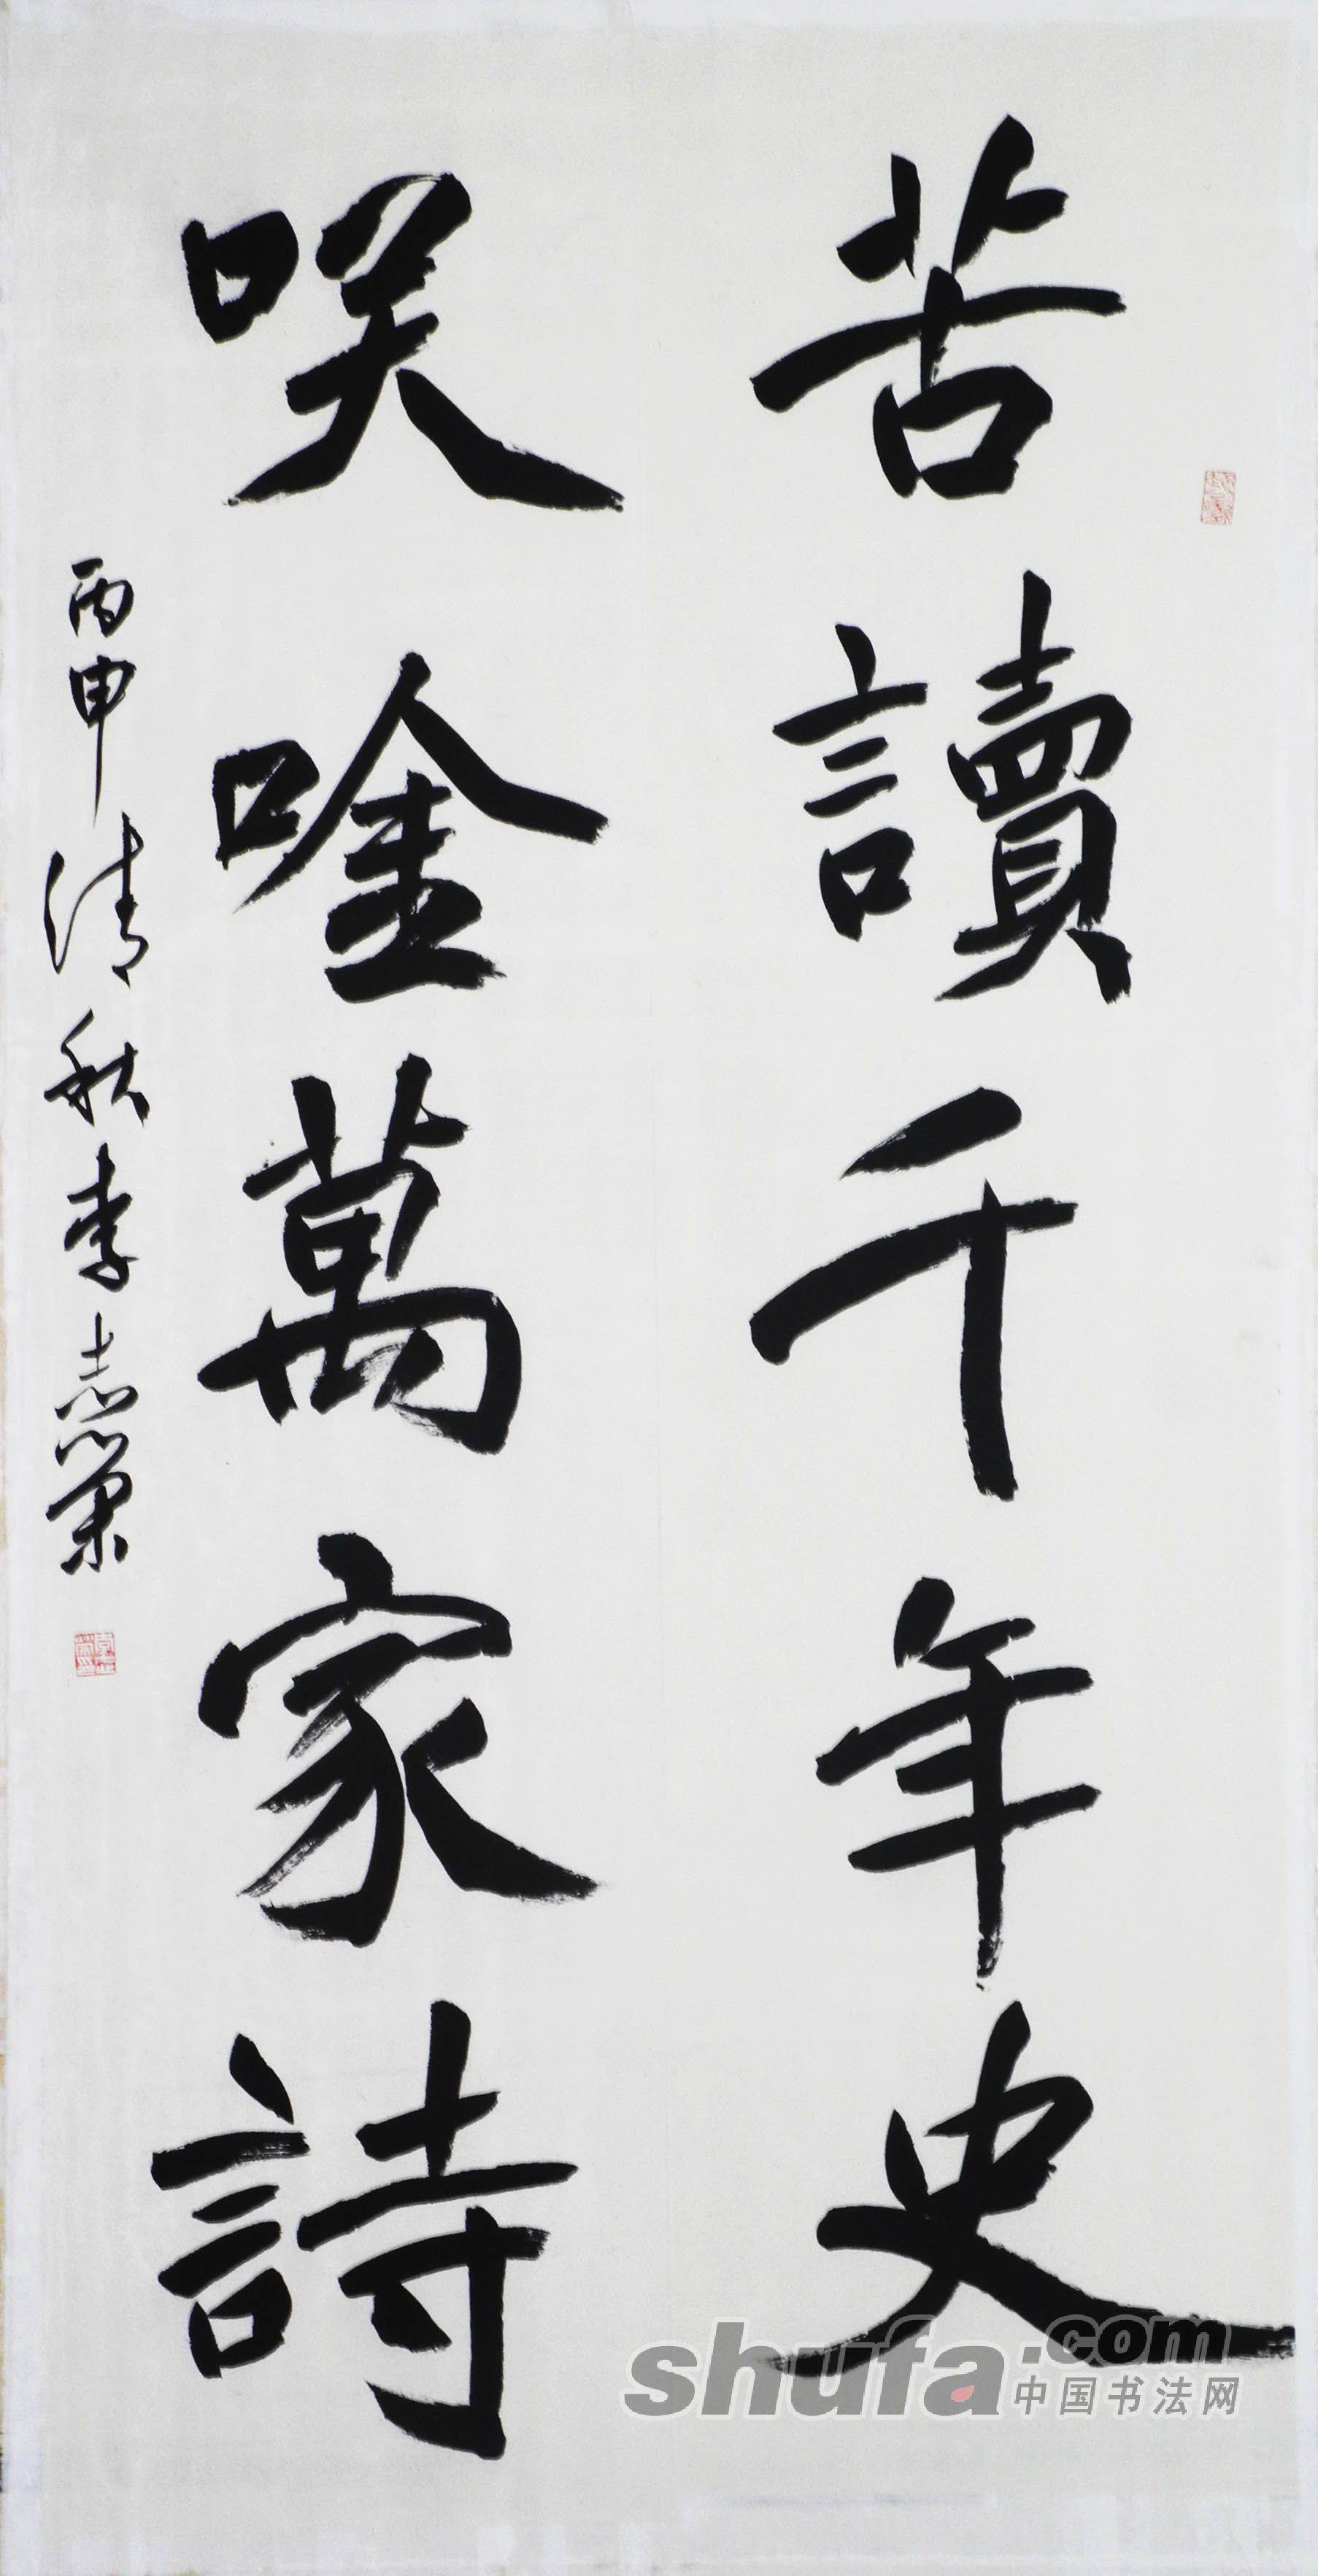 苦讀千年史
咲唫萬家詩
丙申清秋李志榮
shufa.com
中国书法网